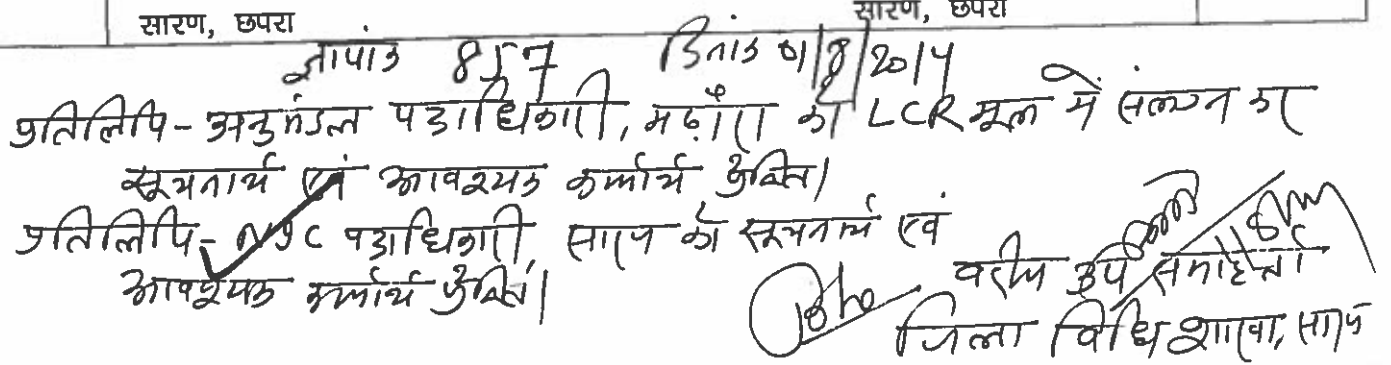 सारण, छपरा सारण, छपरा
ज्ञापांक 857 दिनांक 01/8/2014
प्रतिलिपि - अनुमंडल पदाधिकारी, मढ़ौरा को LCR मूल में संलग्न कर
सूचनार्थ एवं आवश्यक कार्यार्थ प्रेषित।
प्रतिलिपि - NIC पदाधिकारी, सारण को सूचनार्थ एवं
आवश्यक कार्यार्थ प्रेषित।
वरीय उप समाहर्ता
जिला विधि शाखा, सारण